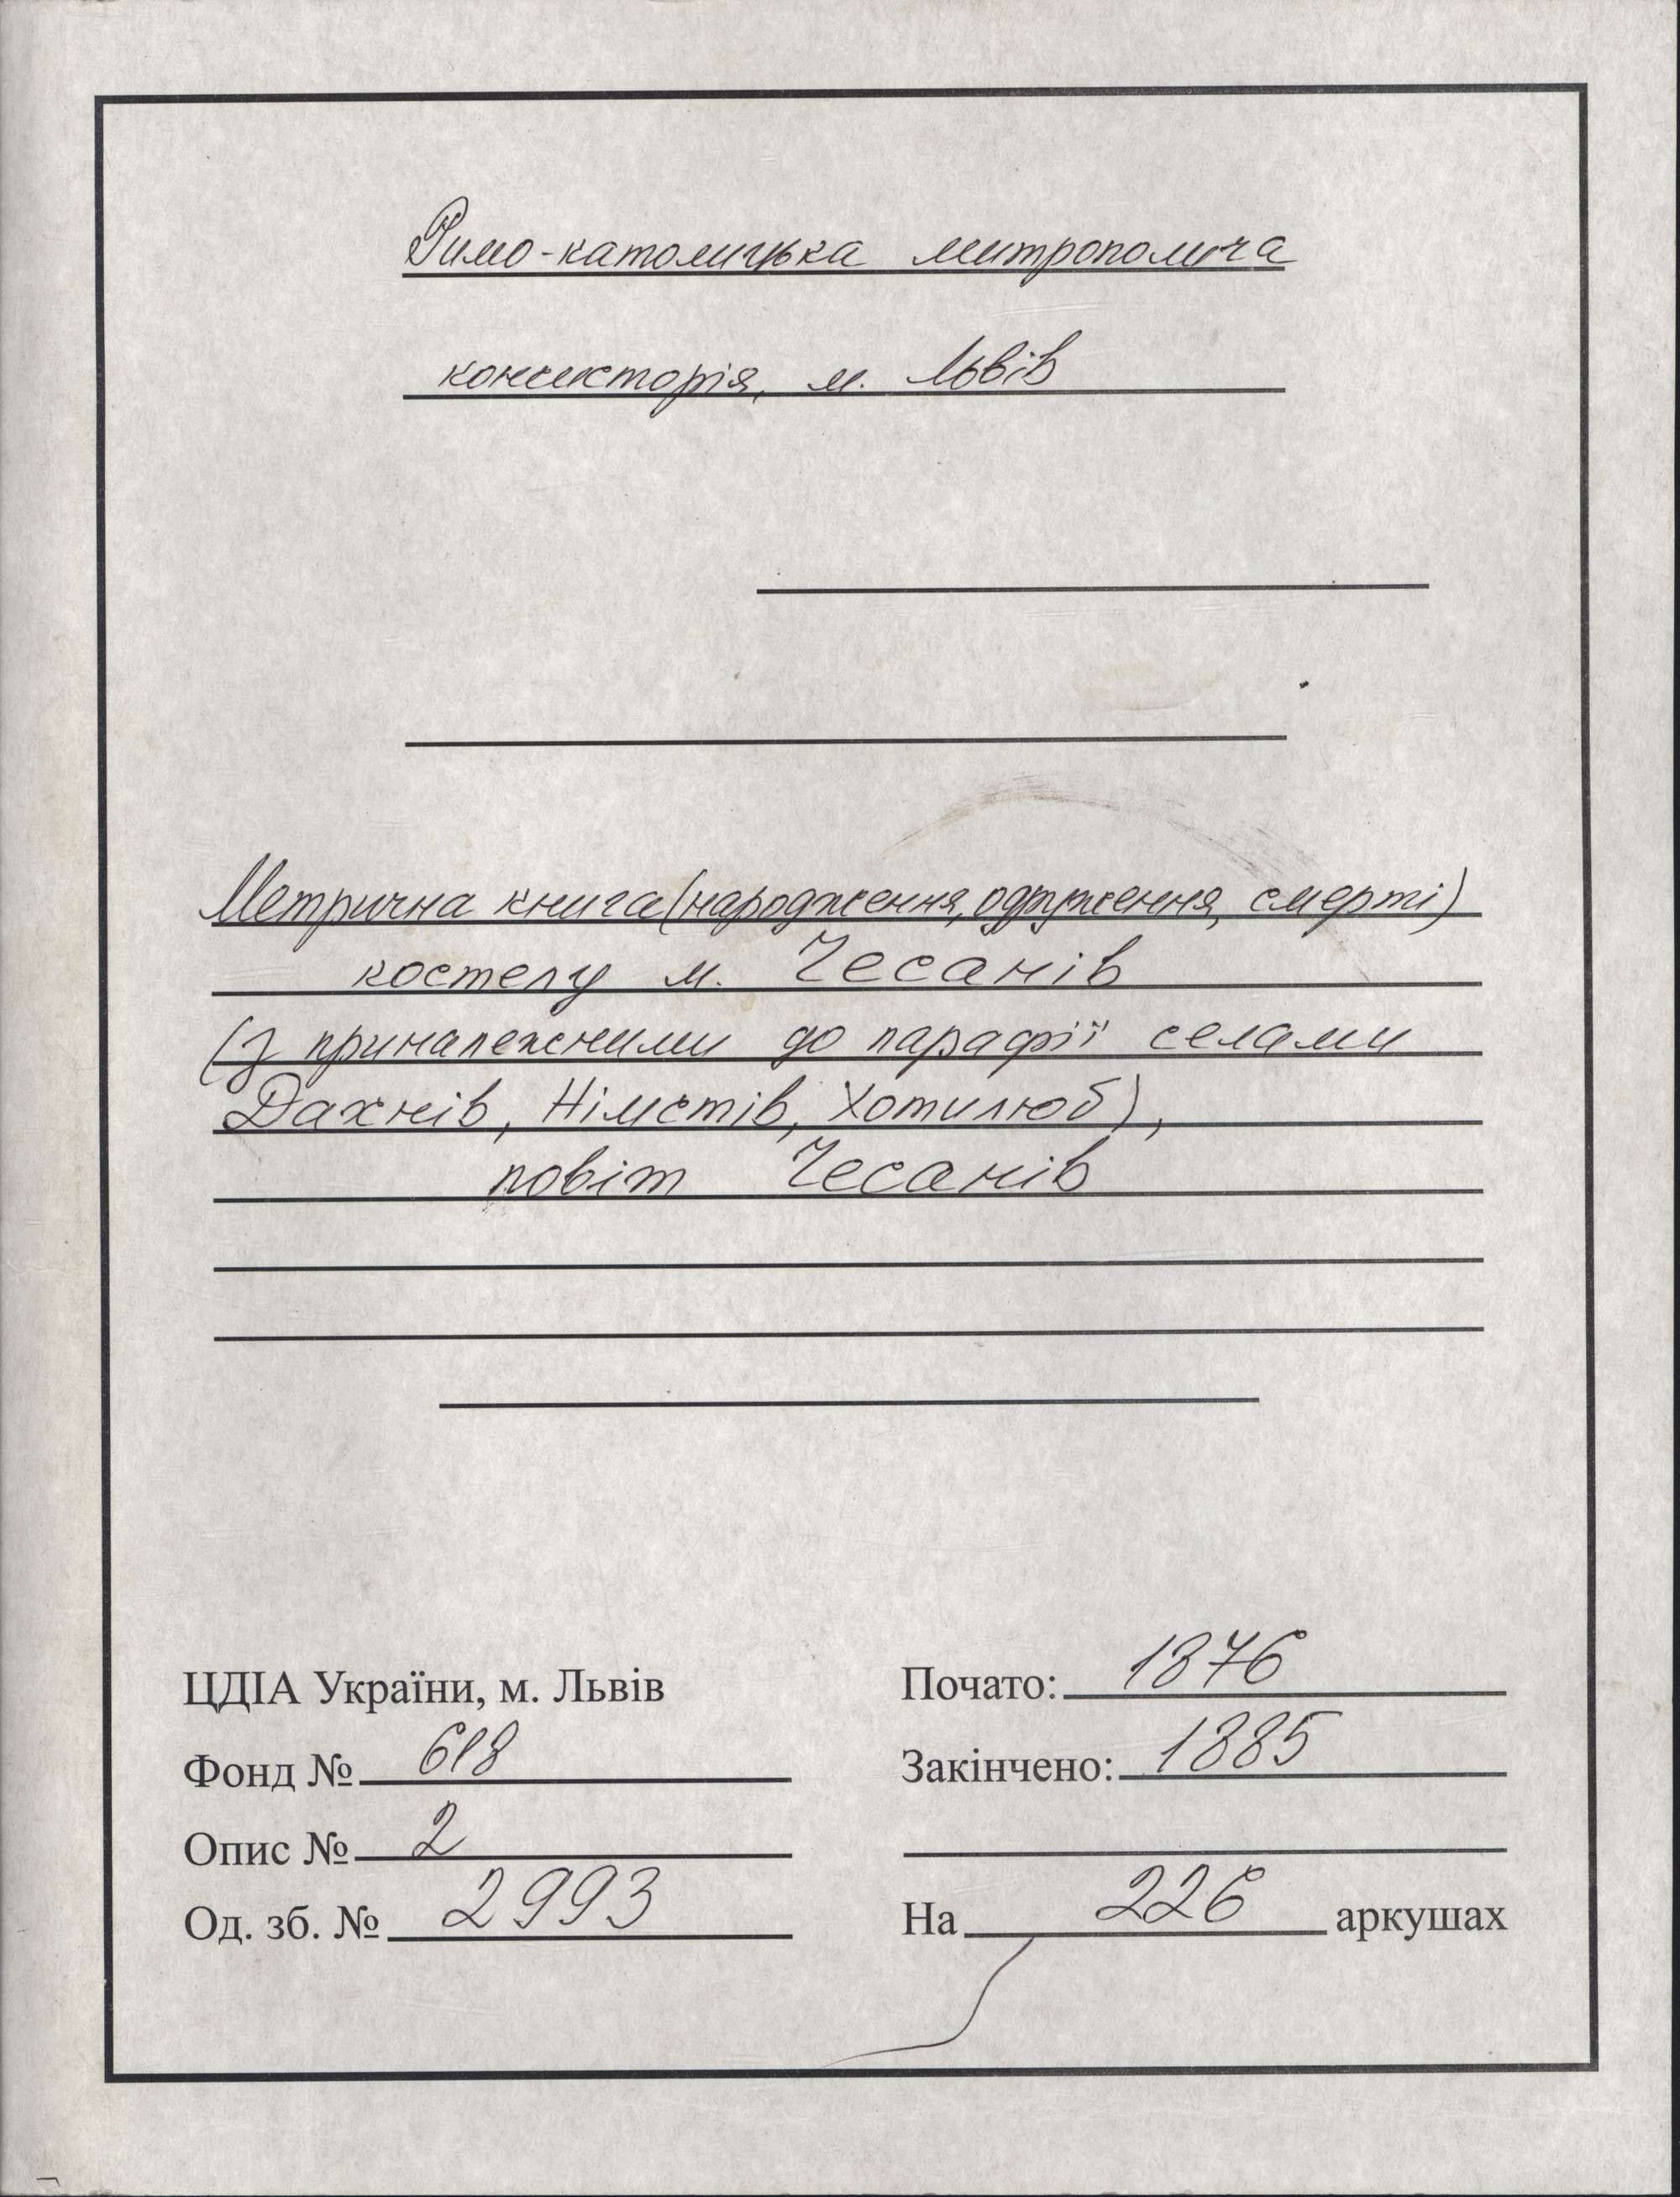 Римо-католицька митрополича
консисторія, м. Львів
Метрична книга (народження, одруження, смерті)
костелу м. Чесанів
(з приналежними до парафії селами
Дахнів, Німстів, Хотилюб),
повіт Чесанів
ЦДІА України, м. Львів
Фонд № 618
Опис № 2
Од. зб. № 2993
Почато: 1876
Закінчено: 1885
На 226 аркушах